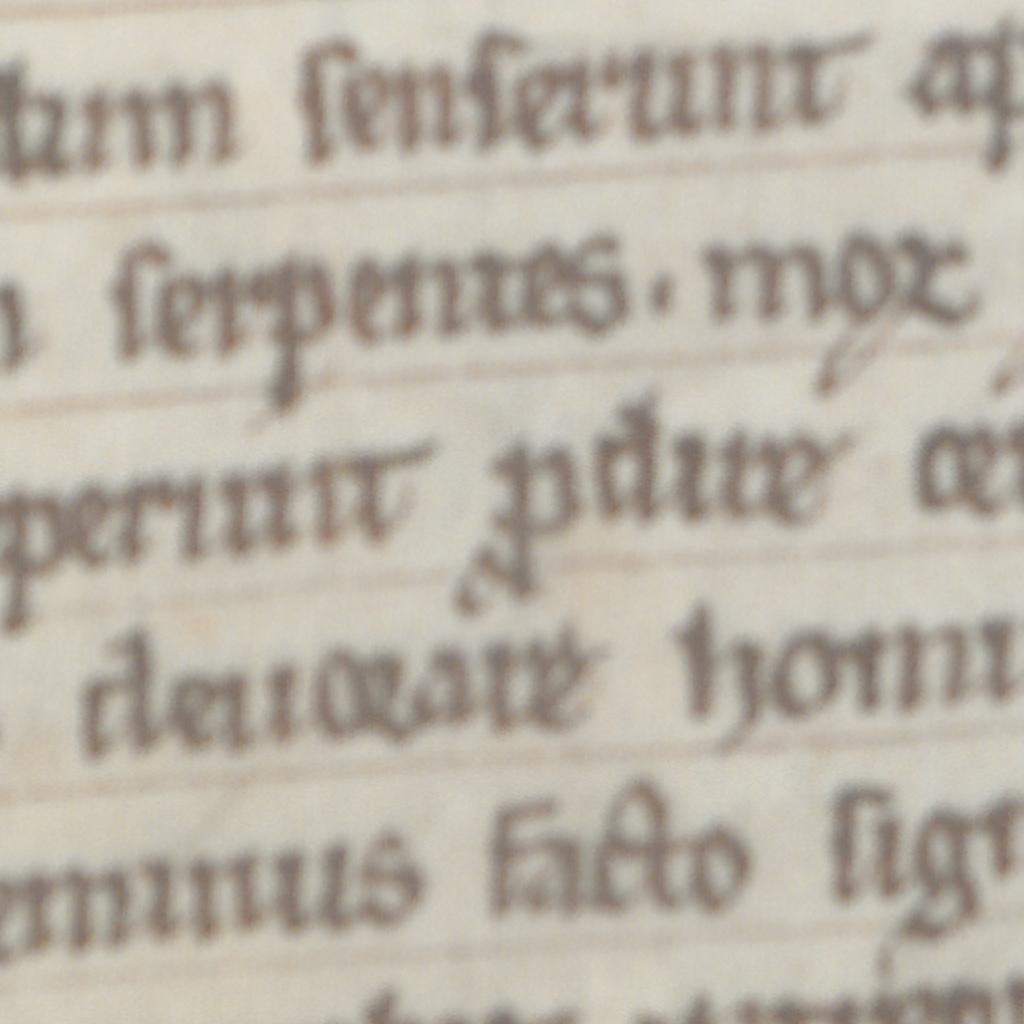 senserunt
serpentes. mox
periunt ꝓdire
deuorare homi
eminus facto sig